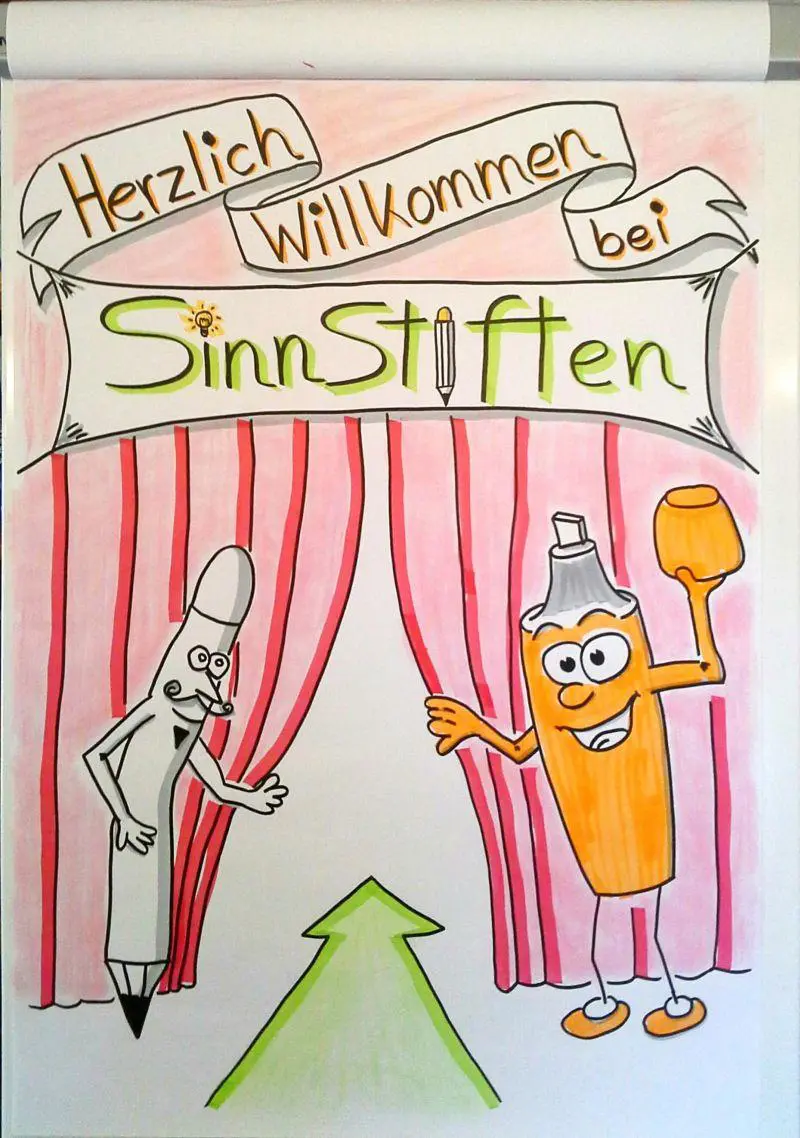 Herzlich
Willkommen
bei
SinnStiften